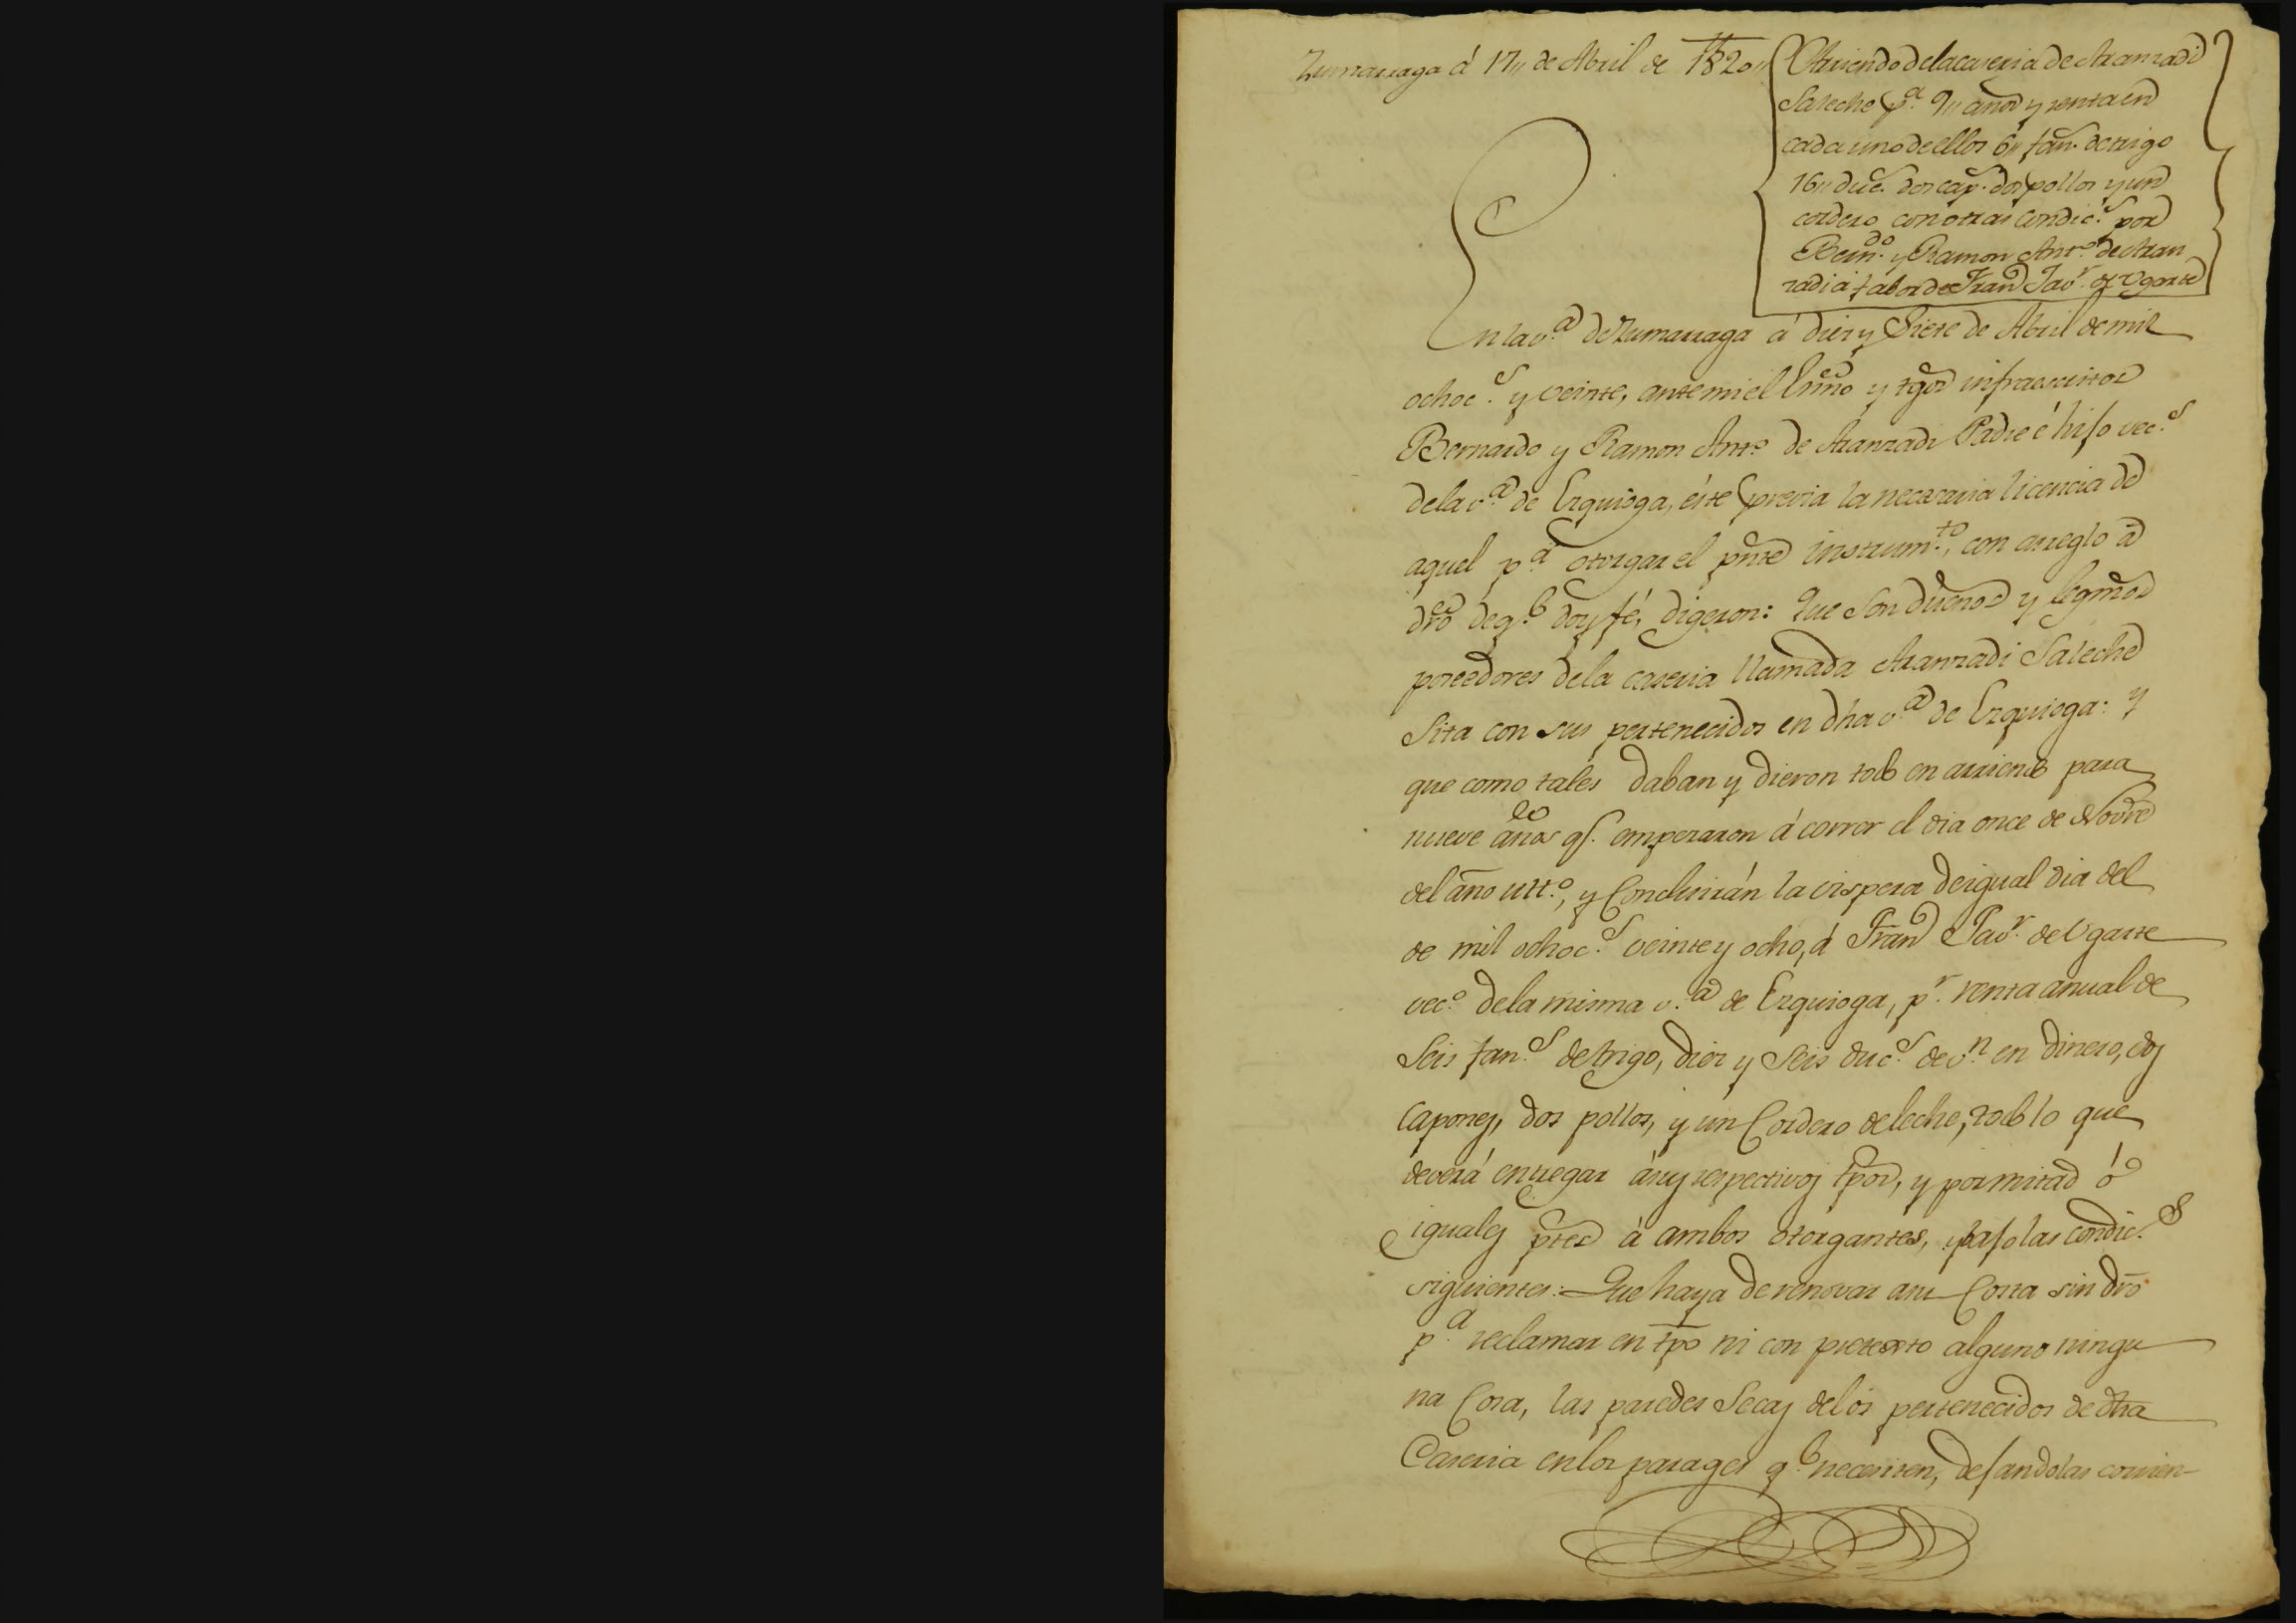 Zumarraga á 17,, de Abril de 1820,,
Arriendo de la caseria de Aranzadi
Saleche p.ª 9,, años y renta en
cada uno de ellos 6,, fan.s de trigo
16,, duc.s dos cap.s dos pollos y un
cordero con otras condic.s por
Bern.do y Ramon Ant.o de Aran
zadi á fabor de Fran.co Jav.r de Ugarte
En la v.ª de Zumarraga á diez y Siete de Abril de mil
ochoc.s y veinte, ante mi el Essno y tgos infraescritos
Bernardo y Ramon Ant.o de Aranzadi Padre é hijo vec.s
de la v.ª de Ezquioga, éste previa la necesaria licencia de
aquel p.ª otorgar el pnte instrum.to, con arreglo á
dro de q.e doy fé, digeron: Que Son dueños y legmos
poseedores de la caseria llamada Aranzadi Saleche
Sita con sus pertenecidos en dha v.ª de Ezquioga: y
que como tales daban y dieron todo en arriendo para
nueve años q.e empezaron á correr el dia once de Novre
del año ult.o, y Concluirán la vispera de igual dia del
de mil ochoc.s veinte y ocho, á Fran.co Jav.r de Ugarte
vec.o de la misma v.ª de Ezquioga, p.r renta anual de
Seis fan.s de trigo, diez y Seis duc.s de v.n en dinero, dos
Capones, dos pollos, y un Cordero de leche, todo lo que
deverá entregar á sus respectivos tpos, y por mitad ó
iguales ptes á ambos otorgantes, y bajo las condic.s
siguientes: Que haya de renovar a su Costa sin dro
p.ª reclamar en tpo ni con pretexto alguno ningu
na Cosa, las paredes Secas de los pertenecidos de dha
Caseria en los parages q.e necesiten, dejandolas corrien-